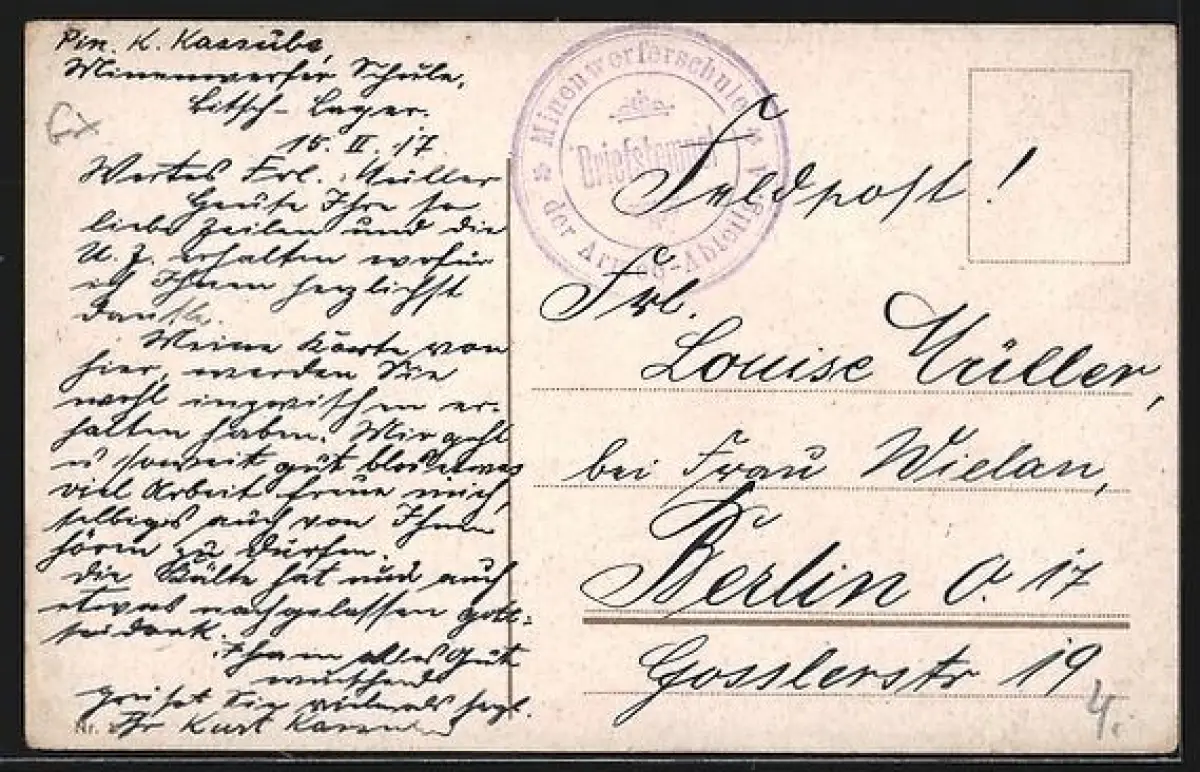 Pin. K. Kassube,
Minenwerfer Schule,
Bitsch-Lager.
15. II. 17
Wertes Frl. Müller
Heute Ihre so
liebe Zeilen und die
U. Z. erhalten wofür
ich Ihnen herzlichst
danke.
Meine Karte von
hier, werden Sie
wohl inzwischen er-
halten haben. Mir geht
es soweit gut blos etwas
viel Arbeit freue mich,
selbiges auch von Ihnen
hören zu dürfen.
Die Kälte hat nun auch
etwas nachgelassen gott-
seidank.
Ihnen alles Gute
wünschend
grüßt Sie vielmals herzl.
Ihr Kurt
Minenwerferschule
Briefstempel
der Armee-Abteilg. A
Feldpost!
Frl.
Louise Müller,
bei Frau Wielan,
Berlin O. 17
Gosslerstr 19
4.